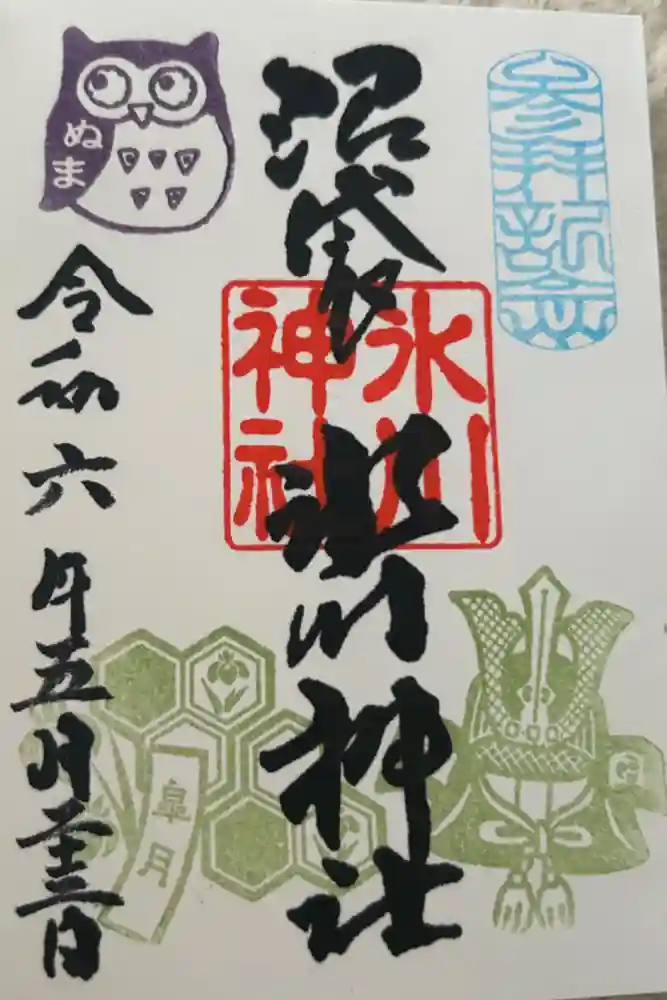 参拝記念
沼袋 氷川神社
氷川
神社
ぬま
令和六年五月二十三日
皐月